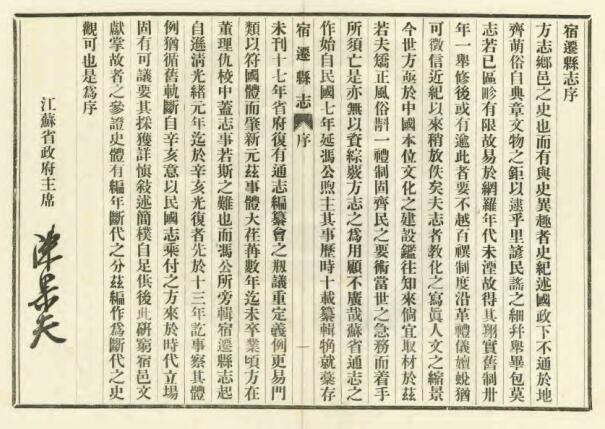 宿遷縣志序
方志鄉邑之史也而有與史異趣者史紀述國政下不通於地
齊萌俗自典章文物之鉅以逮乎里諺民謠之細幷舉畢包莫
志若已區畛有限故易於網羅年代未湮故得其翔實舊制卅
年一舉修後或有逾此者要不越百禩制度沿革禮儀嬗蛻猶
可徵信近紀以來稍放佚矣夫志者教化之寫眞人文之縮景
今世方亟於中國本位文化之建設鑑往知來倘宜取材於茲
若夫矯正風俗斠一禮制固齊民之要術當世之急務而着手
所須亡是亦無以資綜覈方志之爲用顧不廣哉蘇省通志之
作始自民國七年延馮公煦主其事歷時十載纂輯犓就藁存
宿遷縣志 序 一
未刊十七年省府復有通志編纂會之剏議重定義例更易門
類以符國體而肇新元茲事體大荏苒數年迄未卒業頃方在
董理仇校中蓋志事若斯之難也而馮公所旁輯宿遷縣志起
自遜淸光緖元年迄於辛亥光復者先於十三年訖事察其體
例猶循舊軌斷自辛亥意以民國志乘付之方來於時代立場
固有可議要其採獲詳愼敘述簡樸自足供後此硏窮宿邑文
獻掌故者之參證史體有編年斷代之分茲編作爲斷代之史
觀可也是爲序
江蘇省政府主席
陳果夫